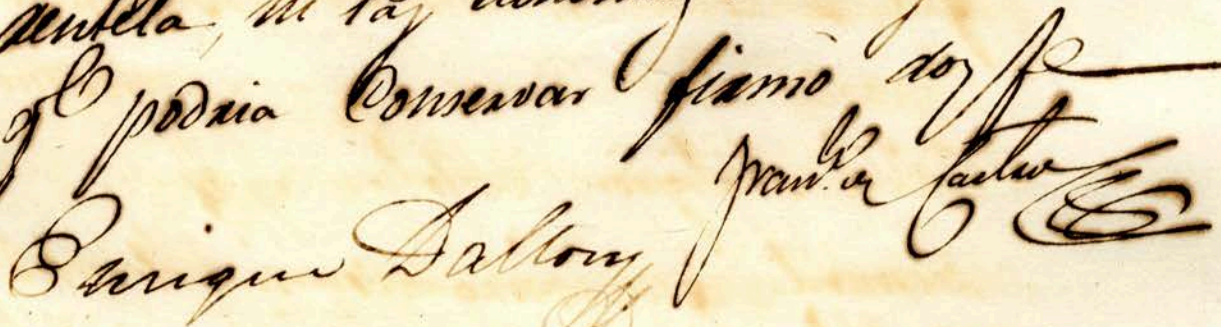 ni las
qe. podria Conservar firmó doy fe
Franco. de Castro
Enrique Dalton